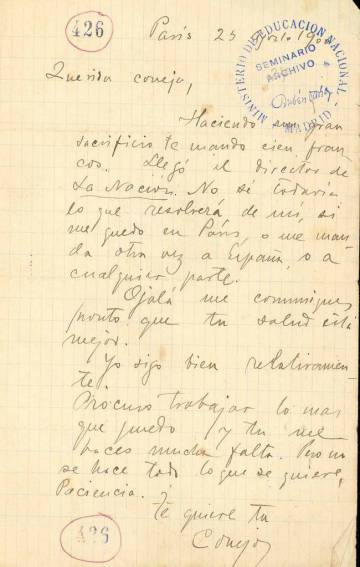 426
París 25 Agosto 190
MINISTERIO DE EDUCACION NACIONAL
SEMINARIO
ARCHIVO
Rubén Darío
MADRID
Querida coneja,
Haciendo un gran
sacrificio te mando cien fran
cos. Llegó el director de
La Nación. No sé todavía
lo que resolverá de mí, si
me quedo en París, o me man
da otra vez a España, o a
cualquier parte.
Ojalá me comuniques
pronto que tu salud está
mejor.
Yo sigo bien relativamen-
te.
Procuro trabajar lo mas
que puedo y tu me
haces mucha falta. Pero no
se hace todo lo que se quiere,
Paciencia.
Te quiere tu
Conejo
426